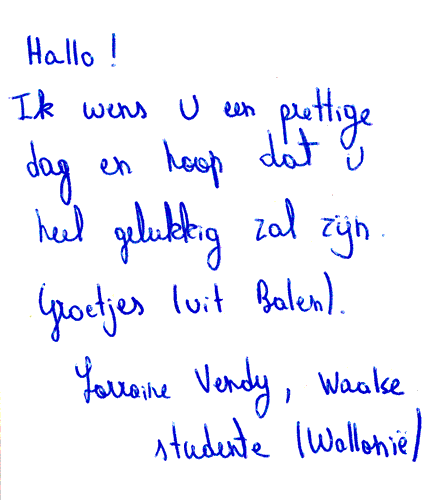 Hallo !
Ik wens U een prettige
dag en hoop dat U
heel gelukkig zal zijn.
Groetjes (uit Balen).
Lorraine Vendy, Waalse
studente (Wallonië)